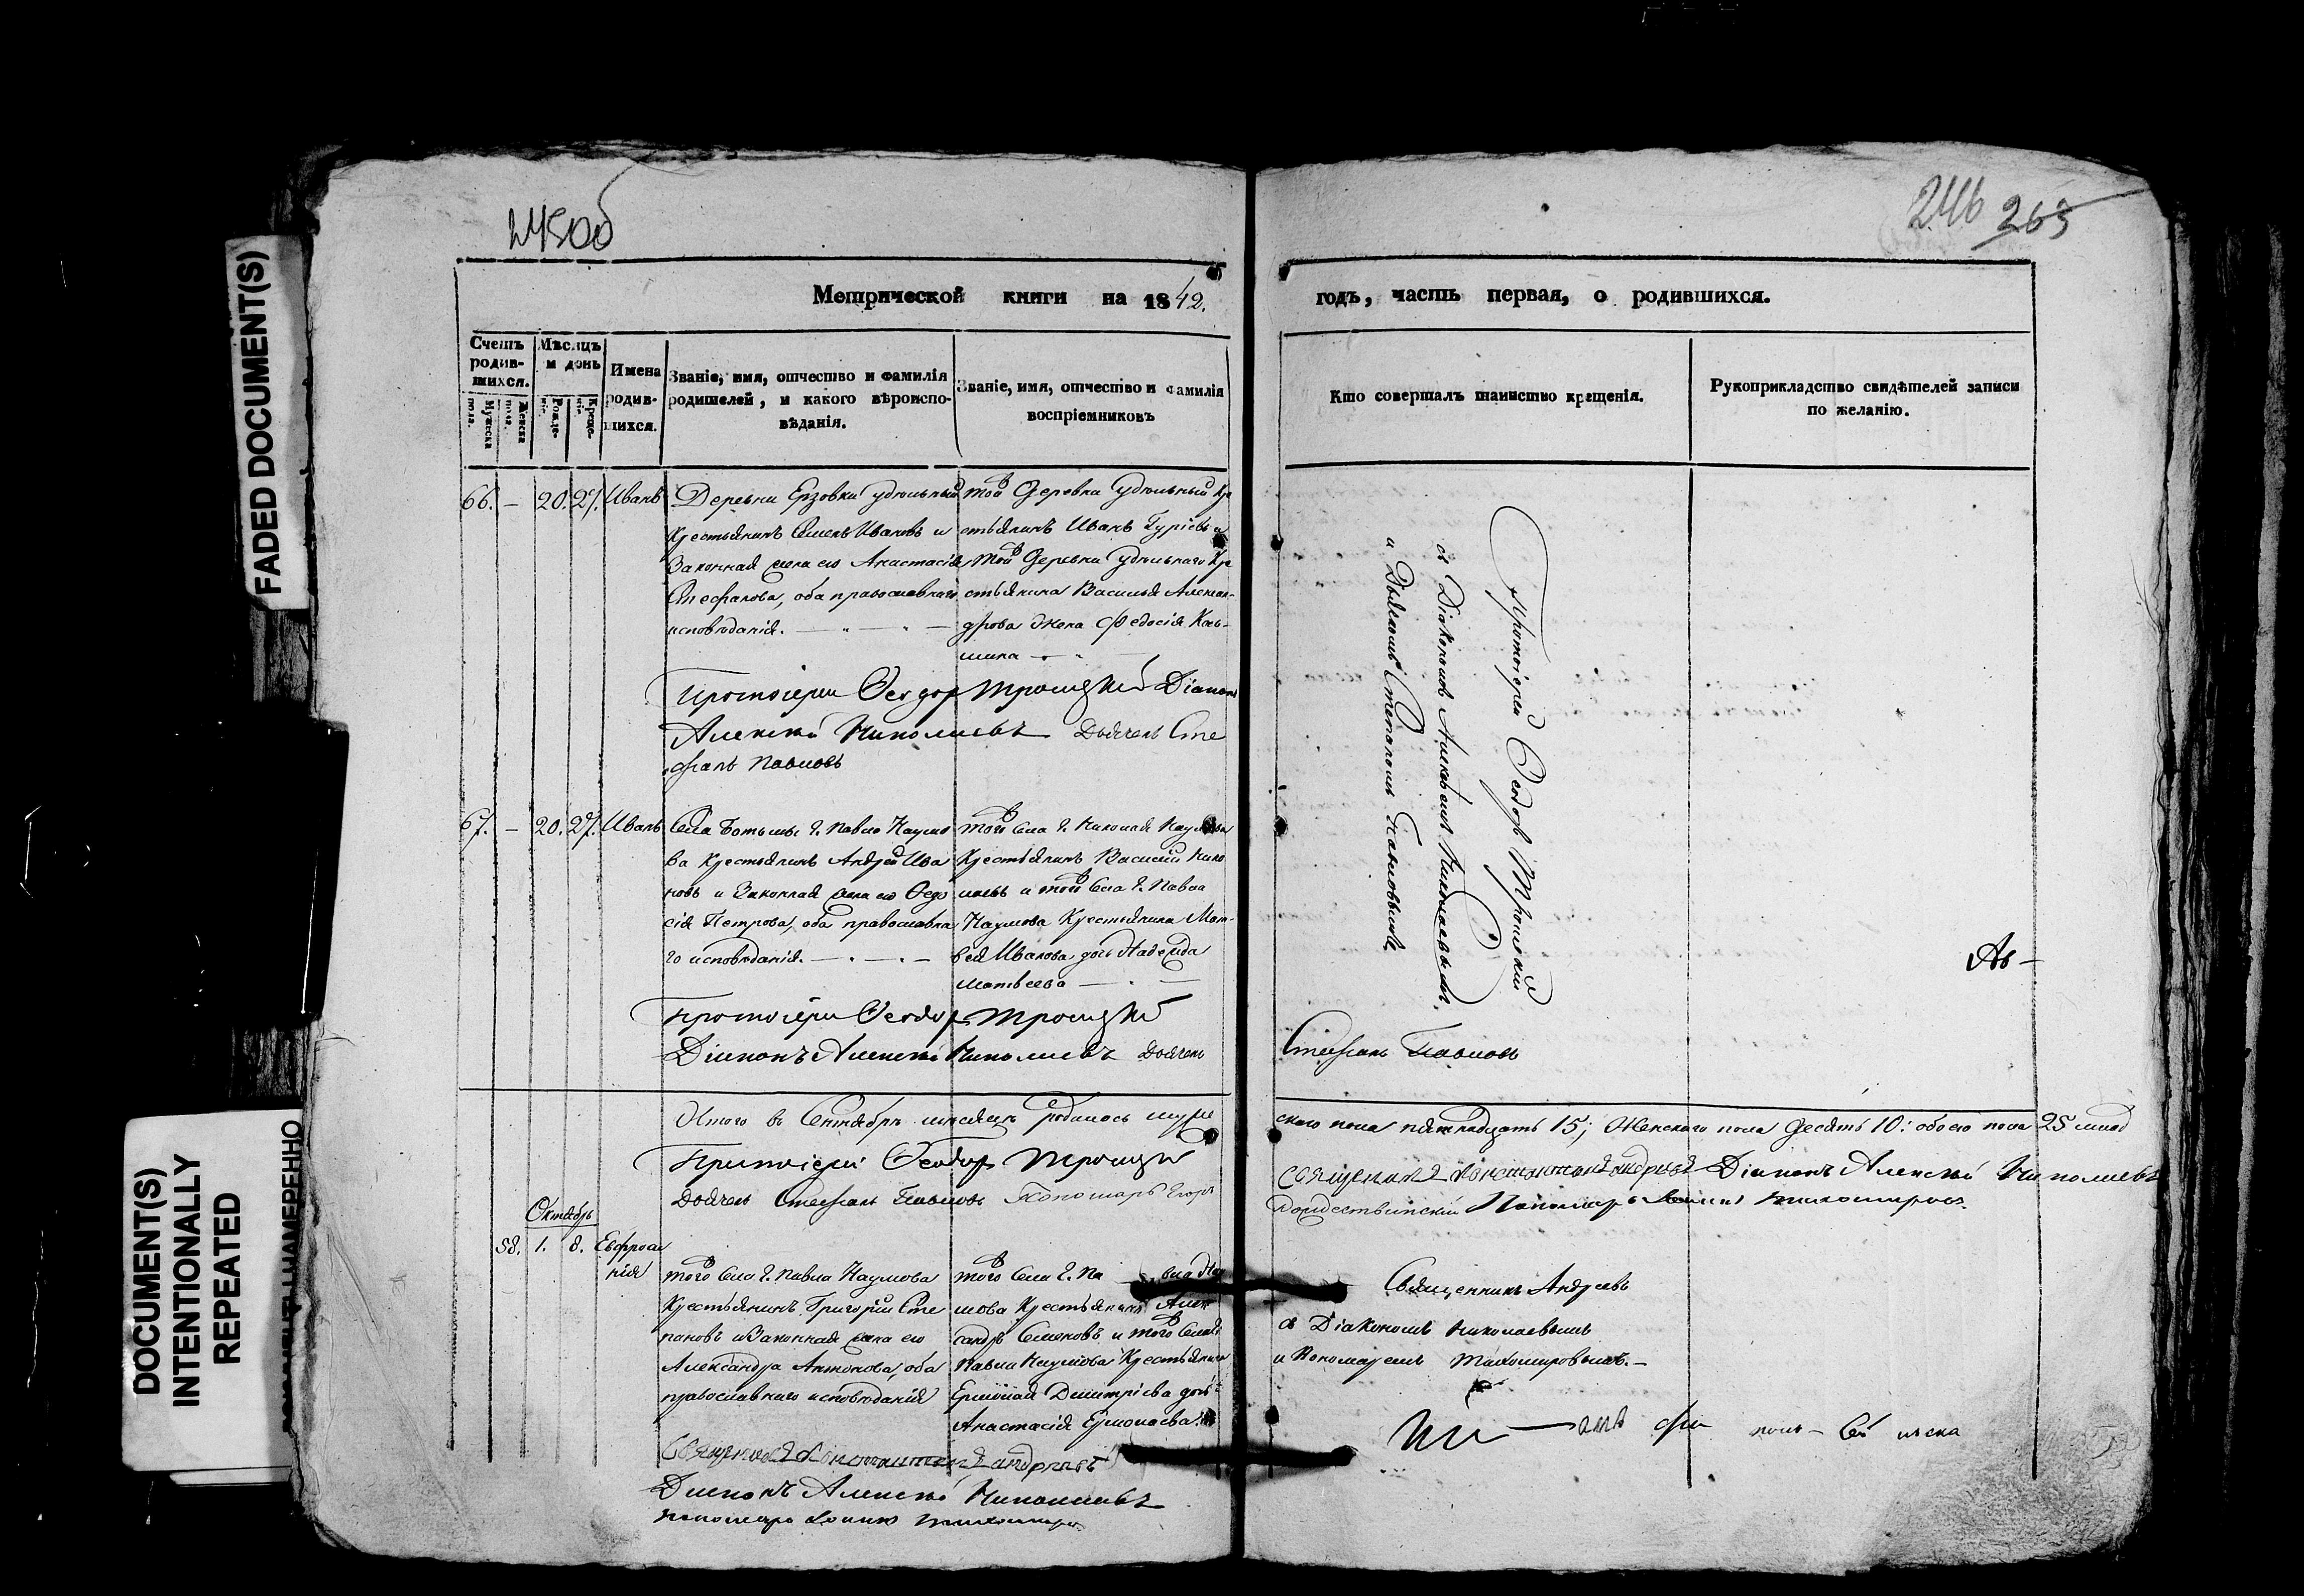 245об
246 263
FADED DOCUMENT(S)
DOCUMENT(S)
INTENTIONALLY
REPEATED
Метрической книги на 1842.
годъ, часть первая, о родившихся.
Счетъ родив-шихся.
Мужеска пола.
Женска пола.
Мѣсяцъ и день
Рожде-нія.
Креще-нія.
Имена родив-шихся.
Званіе, имя, отчество и фамилія родителей, и какого вѣроиспо-вѣданія.
Званіе, имя, отчество и фамилія воспріемниковъ
Кто совершалъ таинство крещенія.
Рукоприкладство свидѣтелей записи по желанію.
66. — 20. 27. Иванъ
Деревни Ерзовки удѣльный
Крестьянинъ Семенъ Ивановъ и
Законная жена его Анастасія
Стефанова, оба православнаго
исповѣданія.
той деревни удѣльный Кре
стьянинъ Иванъ Гуріевъ и
той деревни удѣльнаго Кре
стьянина Василья Алексан-
дрова жена Федосія Кось-
мина
Протоіерей Ѳеодоръ Троицкій
съ Діакономъ Алексѣемъ Николаевымъ
и Дьячкомъ Стефаномъ Павловымъ
Протоіерей Ѳеодоръ Троицкій Діаконъ
Алексѣй Николаевъ Дьячекъ Сте
фанъ Павловъ
67. — 20. 27. Иванъ
Села Ботьмы Г. Павла Наумо
ва Крестьянинъ Андрей Ива
новъ и Законная жена его Ѳедо
сія Петрова, оба православна
го исповѣданія.
того Села Г. Николая Наумова
Крестьянинъ Василій Нико
лаевъ и того Села Г. Павла
Наумова Крестьянина Мат-
вея Иванова дочь Надежда
Матвеева
Ав—
Протоіерей Ѳеодоръ Троицкій
Діаконъ Алексѣй Николаевъ Дьячекъ
Стефанъ Павловъ
Итого въ Сентябрѣ мѣсяцѣ родилось муже
скаго пола пятнадцать 15; Женскаго пола десять 10: обоего пола 25 млад
Протоіерей Ѳеодоръ Троицкій
Священникъ Константинъ Андреевъ Діаконъ Алексѣй Николаевъ
Дьячекъ Стефанъ Павловъ Пономарь Егоръ
Рождественскій Пономарь Тихомировъ
Октябрь
58. 1. 8. Евфроси
нія
того Села Г. Павла Наумова
Крестьянинъ Григорій Сте
пановъ и Законная жена его
Александра Антонова, оба
православнаго исповѣданія
того Села Г. Па вла Нау
мова Крестьянинъ Алек
сандръ Семеновъ и того Села Г.
Павла Наумова Крестьянина
Ермолая Дмитріева дочь
Анастасія Ермолаева.
Священникъ Андреевъ
съ Діакономъ Николаевымъ
и Пономаремъ Тихомировымъ.—
Священникъ Константинъ Андреевъ
Діаконъ Алексѣй Николаевъ
Пономарь Тихомировъ